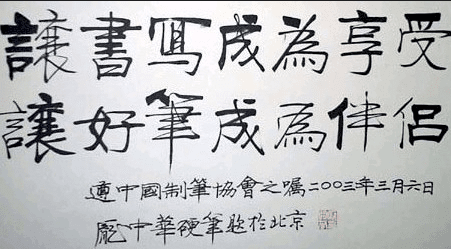 讓書寫成為享受
讓好筆成為伴侶
遵中國制筆協會之嘱二〇〇三年三月六日
龐中華硬筆題於北京